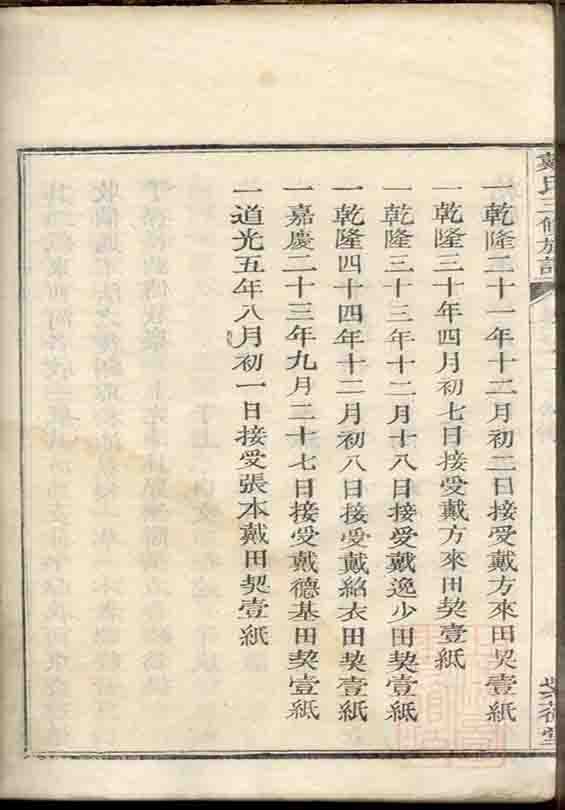 戴氏三修族譜
一乾隆二十一年十二月初二日接受戴方來田契壹紙
一乾隆三十年四月初七日接受戴方來田契壹紙
一乾隆三十三年十二月十八日接受戴逸少田契壹紙
一乾隆四十四年十二月初八日接受戴紹衣田契壹紙
一嘉慶二十三年九月二十七日接受戴德基田契壹紙
一道光五年八月初一日接受張本戴田契壹紙